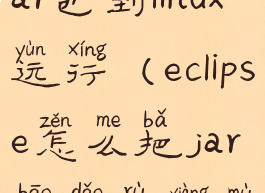 ar包 到linux
yùn xíng
运行 (eclips
zěn me bǎ
e怎么把jar
bāo dǎo rù xiàng mù